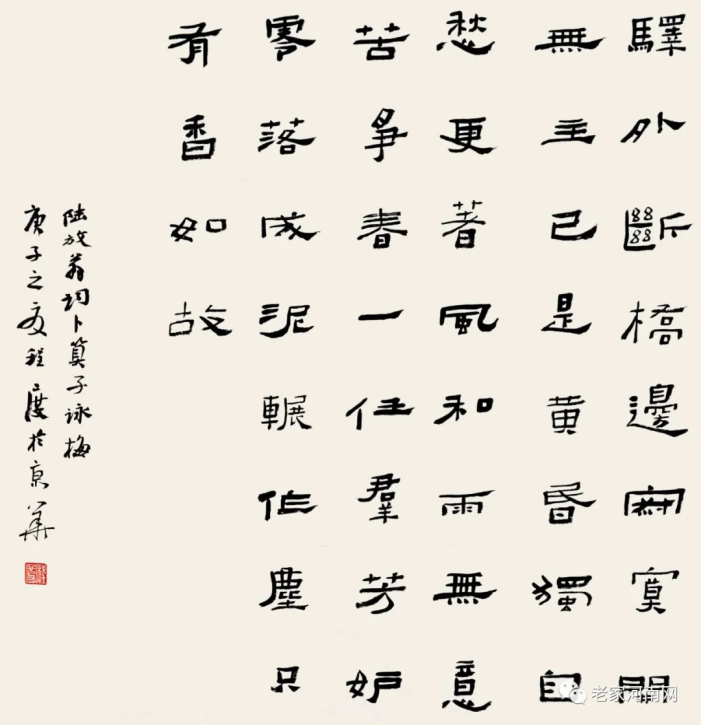 驛外斷橋邊寂寞開
無主已是黃昏獨自
愁更著風和雨無意
苦爭春一任羣芳妒
零落成泥輾作塵只
有香如故
陸放翁詞卜算子詠梅
庚子之夏程度於京華
老家河南网